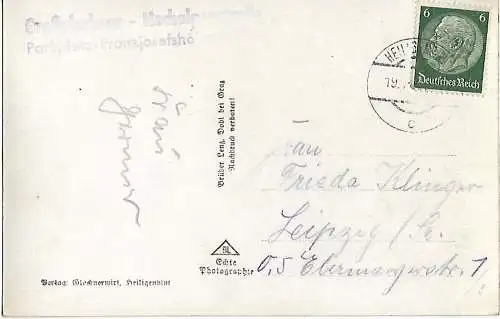 Großglockner - Hochalpenstraße
Parkplatz Franzjosefshö
6 6
Deutsches Reich
HEILI
19.
c
Brüder Lenz, Dobl bei Graz
Nachdruck verboten!
Frau
Frieda Klinger
Leipzig
0,5
1
BL
Echte
Photographie
Verlag: Glocknerwirt, Heiligenblut